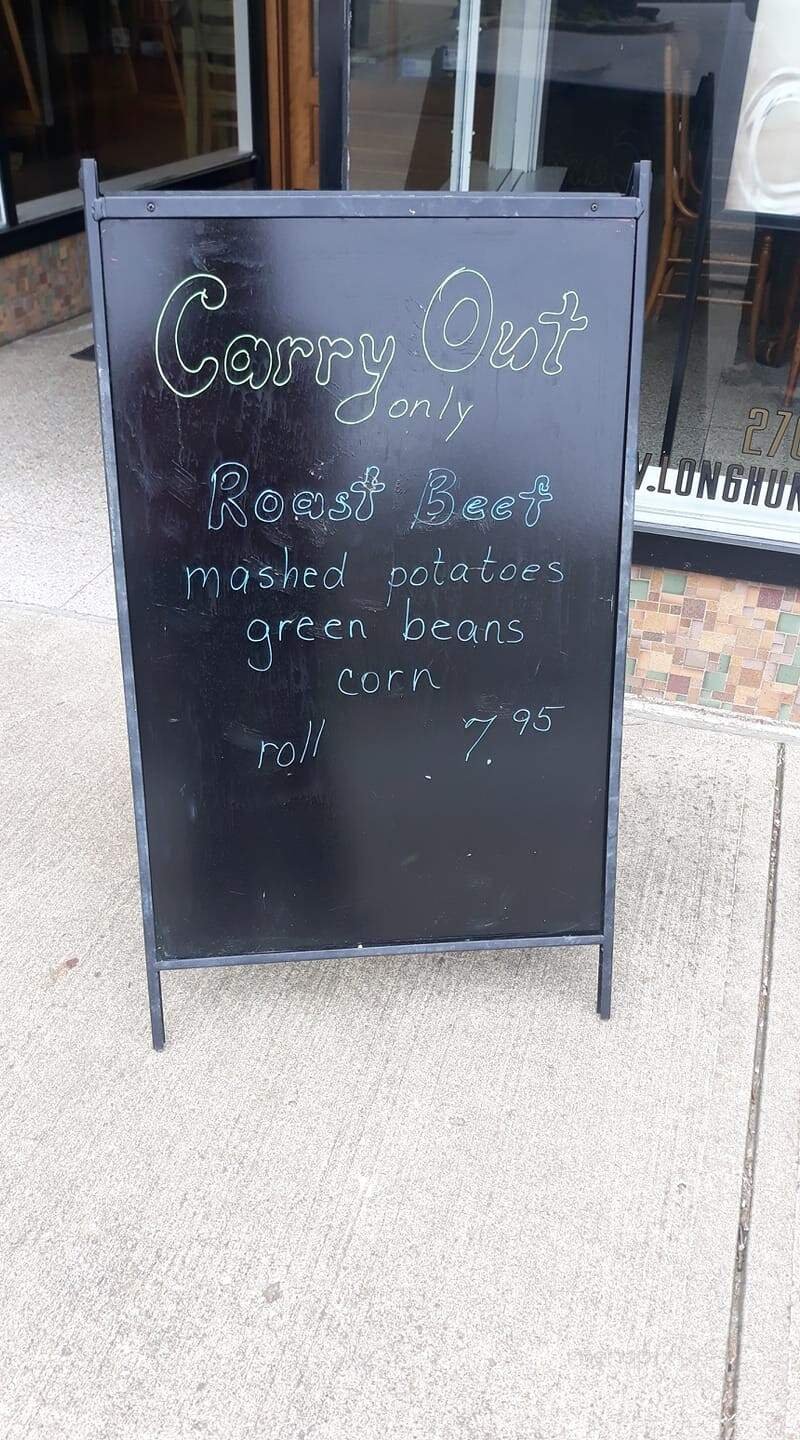 Carry Out
only
Roast Beef
mashed potatoes
green beans
corn
roll 7.95
270
.LONGHUN